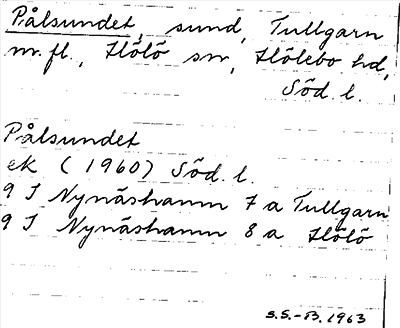 Pålsundet, sund, Tullgarn
m.fl., Hölö sn, Hölebo hd,
Söd. l.
Pålsundet
ek (1960) Söd. l.
9 I Nynäshamn 7 a Tullgarn
9 I Nynäshamn 8 a Hölö
S.S.-B. 1963